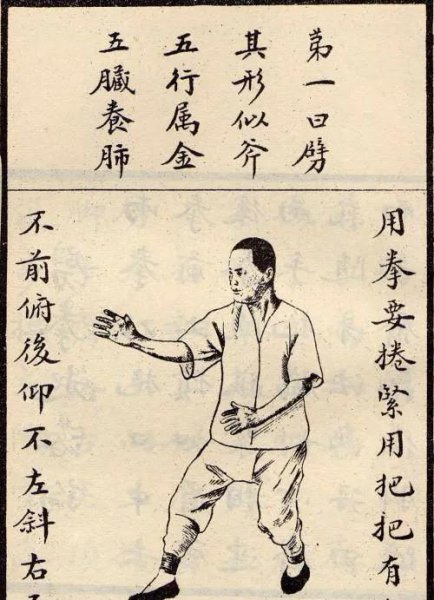 第一曰劈
其形似斧
五行属金
五臟養肺
用拳要捲緊用把把有
不前俯後仰不左斜右